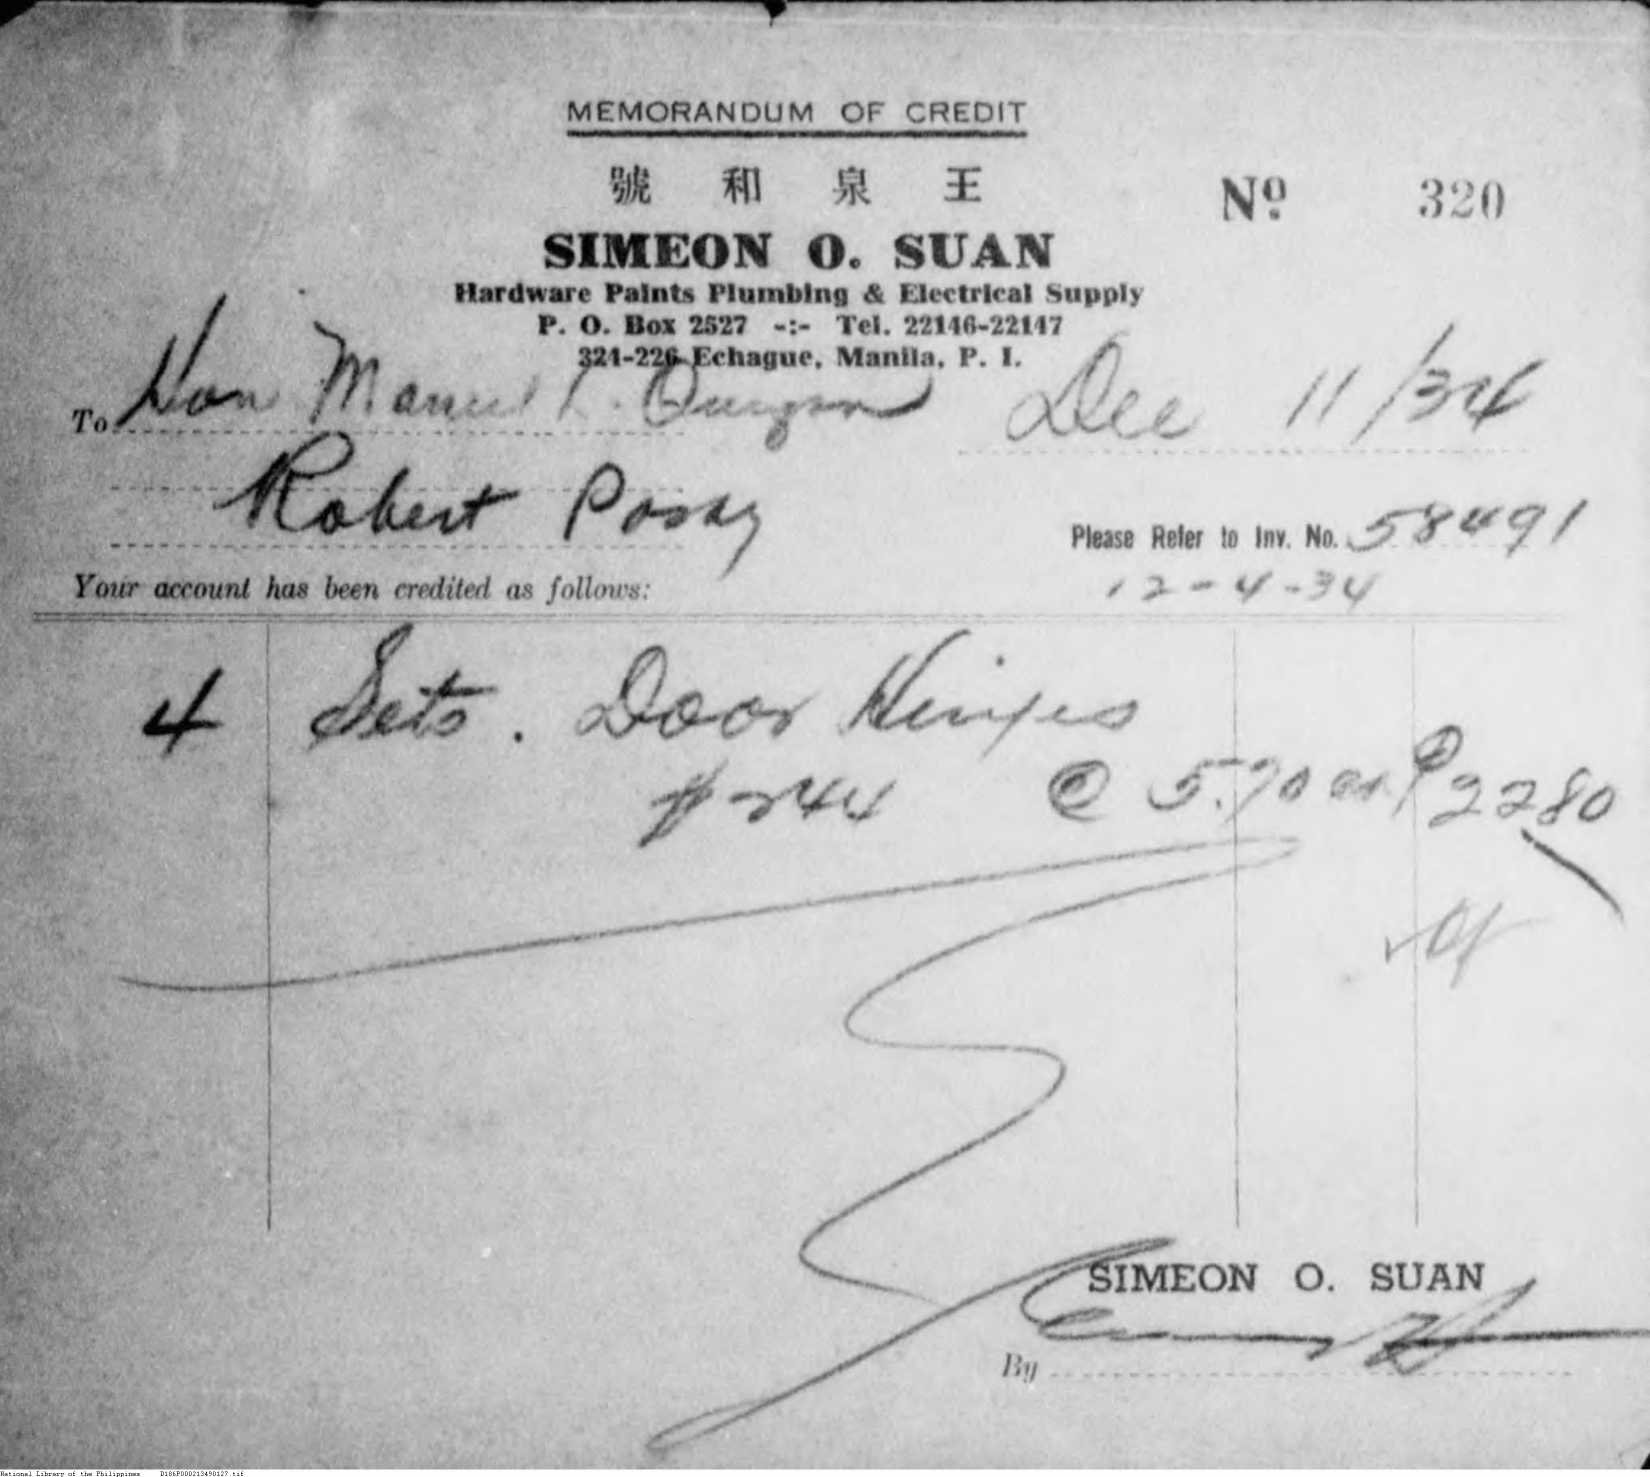 MEMORANDUM OF CREDIT
號 和 泉 王
Nº 320
SIMEON O. SUAN
Hardware Paints Plumbing & Electrical Supply
P. O. Box 2527 -:- Tel. 22146-22147
321-226 Echague, Manila, P. I.
To Hon Manuel L. Quezon Dec 11/34
Robert
Please Refer to Inv. No. 58491
12-4-34
Your account has been credited as follows:
4 Sets. Door Hinges
# 244 @ 5.70 ea. ₱22 80
SIMEON O. SUAN
By
National Library of the Philippines D186P000213490127.tif